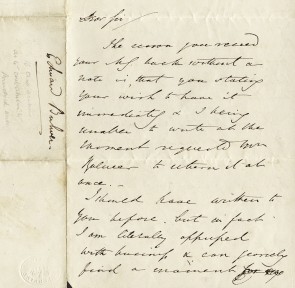 Dear Sir
The reason you received
your MS back without a
note is, that you stating
your wish to have it
immediately & I being
unable to write at the
moment requested Mr
to return it at
once. –
I should have written to
you before, but in fact
I am literally oppressed
with business & can scarcely
find a moment
Edward